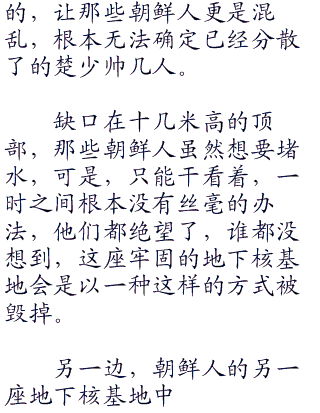 的，让那些朝鲜人更是混
乱，根本无法确定已经分散
了的楚少帅几人。
缺口在十几米高的顶
部，那些朝鲜人虽然想要堵
水，可是，只能干看着，一
时之间根本没有丝毫的办
法，他们都绝望了，谁都没
想到，这座牢固的地下核基
地会是以一种这样的方式被
毁掉。
另一边，朝鲜人的另一
座地下核基地中